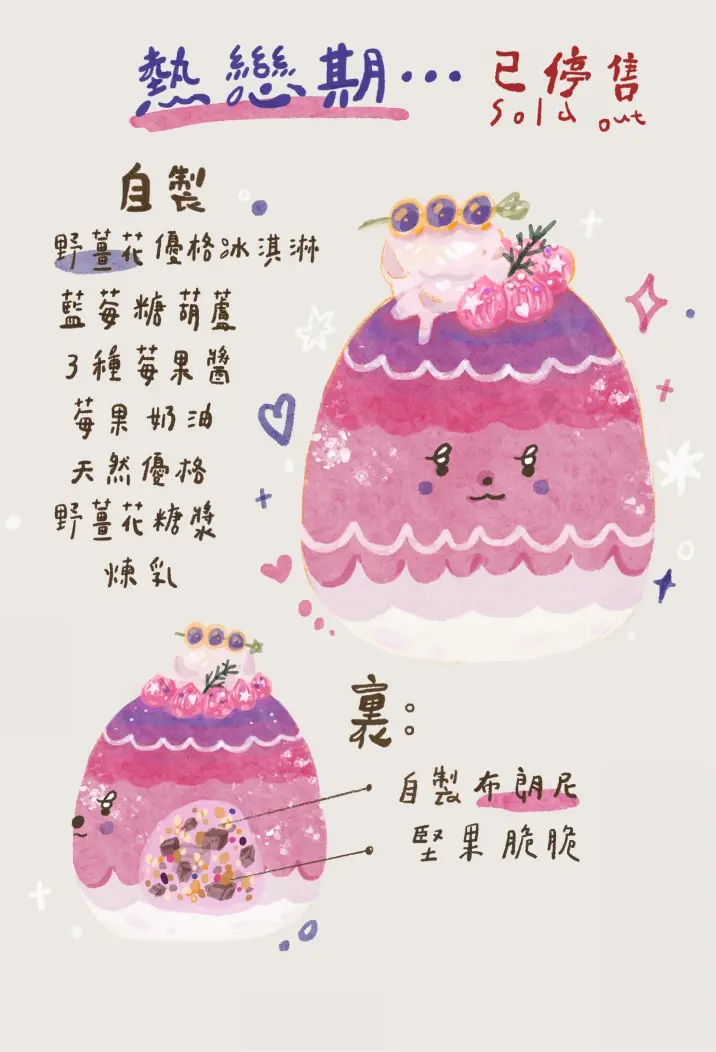 熱戀期…
已停售
sold out
自製
野薑花優格冰淇淋
藍莓糖葫蘆
3種莓果醬
莓果奶油
天然優格
野薑花糖漿
煉乳
裏:
自製布朗尼
堅果脆脆